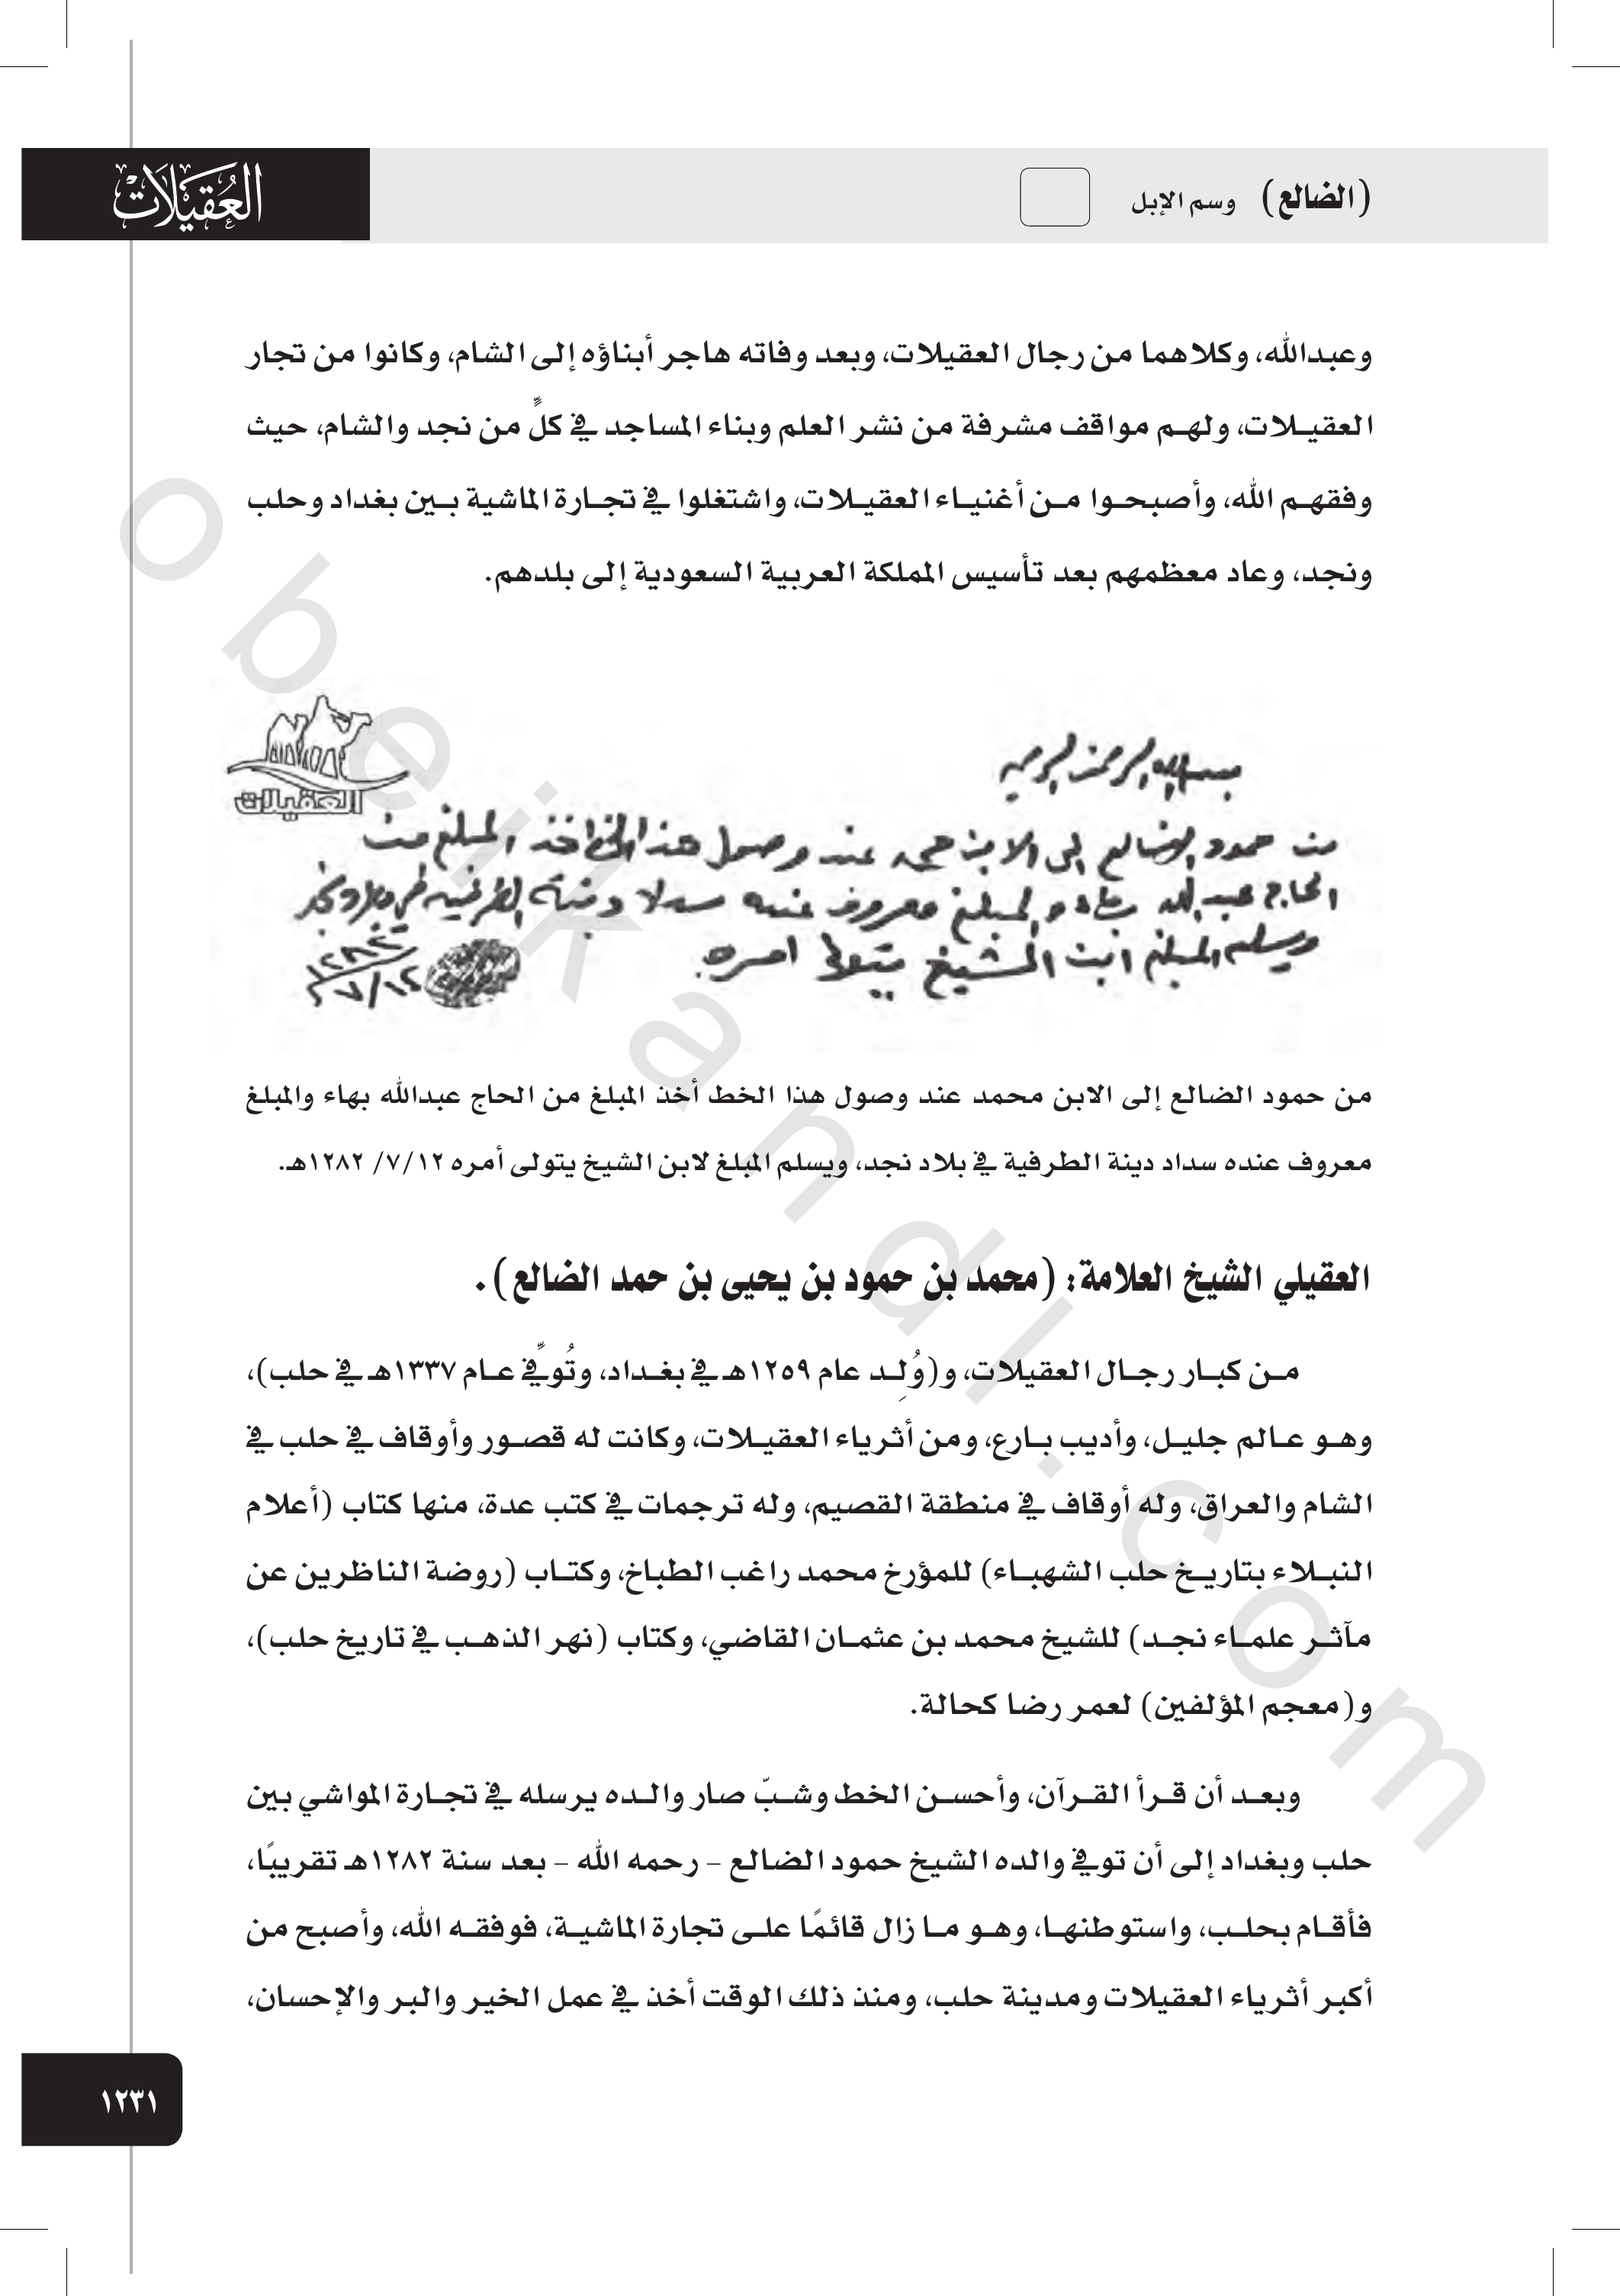 (الضالع) وسم الإبل
العُقيلات
وعبدالله، وكلاهما من رجال العقيلات، وبعد وفاته هاجر أبناؤه إلى الشام، وكانوا من تجار
العقيـلات، ولهـم مواقف مشرفة من نشر العلم وبناء المساجد في كلٍّ من نجد والشام، حيث
وفقهـم الله، وأصبحـوا مـن أغنيـاء العقيـلات، واشتغلوا في تجـارة الماشية بـين بغداد وحلب
ونجد، وعاد معظمهم بعد تأسيس المملكة العربية السعودية إلى بلدهم.
العقيلات
بسم الله الرحمن الرحيم
من حمود الضالع إلى الابن محمد عند وصول هذا الخط اخذ المبلغ من
الحاج عبدالله بهاء والمبلغ معروف عنده سداد دينة الطرفية في بلاد نجد
ويسلم المبلغ ابن الشيخ يتولا امره
١٢٨٢
٧/١٢
من حمود الضالع إلى الابن محمد عند وصول هذا الخط أخذ المبلغ من الحاج عبدالله بهاء والمبلغ
معروف عنده سداد دينة الطرفية في بلاد نجد، ويسلم المبلغ لابن الشيخ يتولى أمره ٧/١٢/ ١٢٨٢هـ.
العقيلي الشيخ العلامة: (محمد بن حمود بن يحيى بن حمد الضالع).
مـن كبـار رجـال العقيلات، و(وُلِـد عام ١٢٥٩هـ في بغـداد، وتُوفِّي عـام ١٣٣٧هـ في حلب)،
وهـو عـالم جليـل، وأديب بـارع، ومن أثرياء العقيـلات، وكانت له قصـور وأوقاف في حلب في
الشام والعراق، وله أوقاف في منطقة القصيم، وله ترجمات في كتب عدة، منها كتاب (أعلام
النبـلاء بتاريـخ حلب الشهبـاء) للمؤرخ محمد راغب الطباخ، وكتـاب (روضة الناظرين عن
مآثـر علمـاء نجـد) للشيخ محمد بن عثمـان القاضي، وكتاب (نهر الذهـب في تاريخ حلب)،
و(معجم المؤلفين) لعمر رضا كحالة.
وبعـد أن قـرأ القـرآن، وأحسـن الخط وشـبّ صار والـده يرسله في تجـارة المواشي بين
حلب وبغداد إلى أن توفي والده الشيخ حمود الضالع – رحمه الله – بعد سنة ١٢٨٢هـ تقريبًا،
فأقـام بحلـب، واستوطنهـا، وهـو مـا زال قائمًا علـى تجارة الماشيـة، فوفقـه الله، وأصبح من
أكبر أثرياء العقيلات ومدينة حلب، ومنذ ذلك الوقت أخذ في عمل الخير والبر والإحسان،
١٢٣١
obeikandl.com